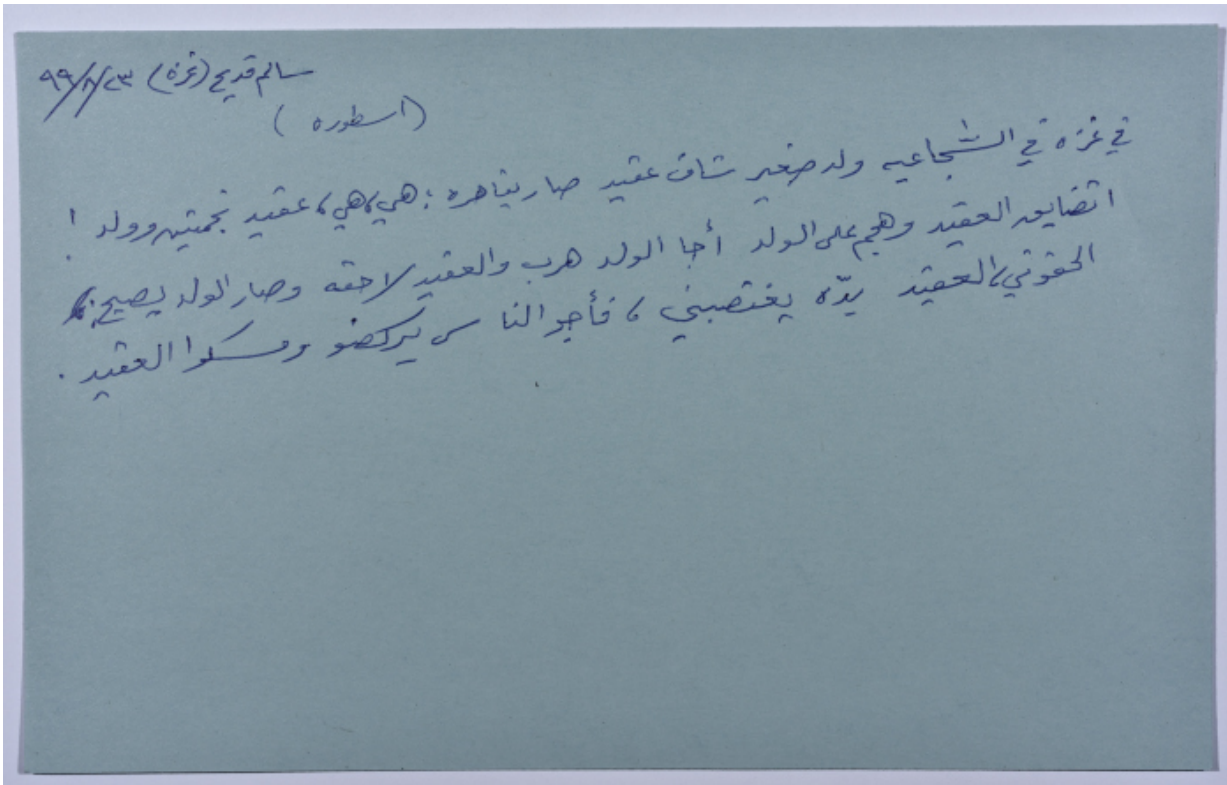 سالم قديح (غزه) ٢٣/٨/٩٩
(اسطوره)
في غزه في الشجاعيه ولد صغير شاف عقيد صار يقاهره: هي، هي، عقيد نجمتين وولد!
اتضايق العقيد وهجم على الولد أجا الولد هرب والعقيد لاحقه وصار الولد يصيح:
الحقوني، العقيد بدّه يغتصبني، فأجو الناس يركضو ومسكوا العقيد.